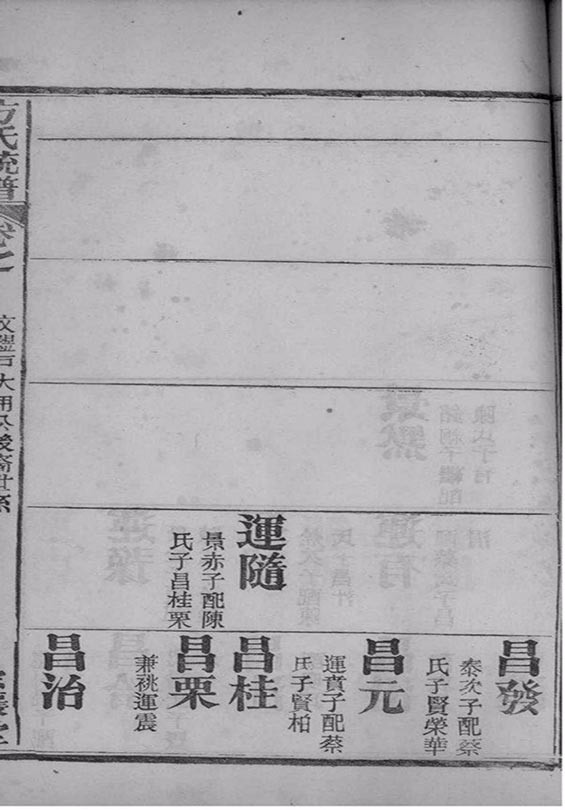 運隨
景赤子配陳
氏子昌桂栗
昌發
泰次子配蔡
氏子賢榮華
昌元
運賁子配蔡
氏子賢柏
昌桂
昌栗
兼祧運震
昌治
方氏統譜
卷之